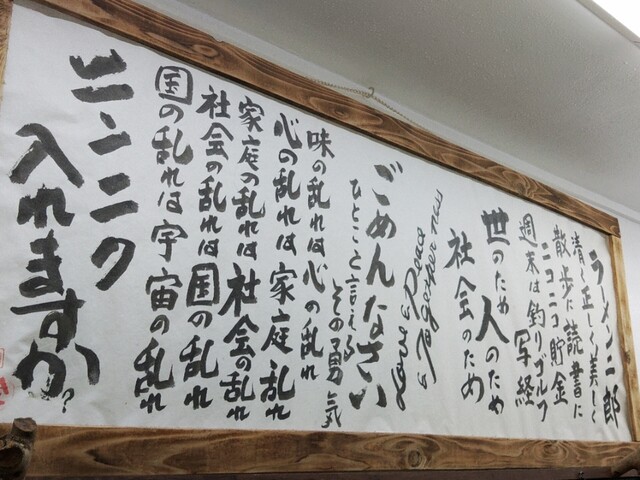 ラーメン二郎
清く正しく美しく
散歩に読書に
ニコニコ貯金
週末は釣りゴルフ
写経
世のため人のため
社会のため
Love & Peace & Together
ごめんなさい
ひとこと言える
その勇気
味の乱れは心の乱れ
心の乱れは家庭の乱れ
家庭の乱れは社会の乱れ
社会の乱れは国の乱れ
国の乱れは宇宙の乱れ
ニンニク
入れますか?